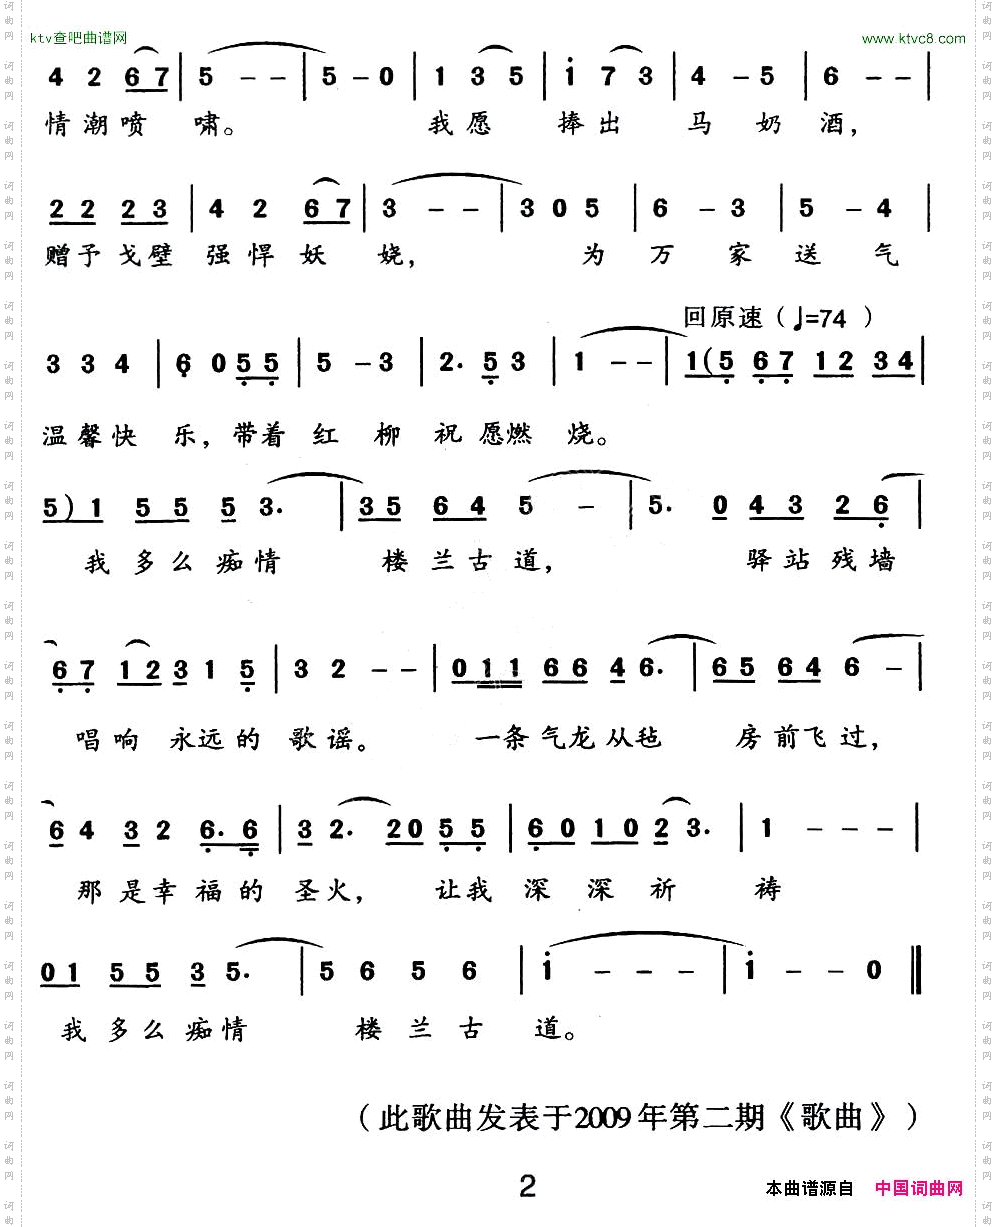 ktv查吧曲谱网 www.ktvc8.com
4 2 6 7 | 5 - - | 5 - 0 | 1 3 5 | i 7 3 | 4 - 5 | 6 - - |
情潮喷 啸。 我愿 捧出 马 奶 酒，
2 2 2 3 | 4 2 6 7 | 3 - - | 3 0 5 | 6 - 3 | 5 - 4 |
赠予戈壁 强悍妖 娆， 为 万 家 送 气
回原速（♩=74 ）
3 3 4 | 6 0 5 5 | 5 - 3 | 2. 5 3 | 1 - - | 1 (5 6 7 1 2 3 4 |
温馨快 乐，带着 红 柳 祝 愿燃 烧。
5) 1 5 5 5 3. | 3 5 6 4 5 - | 5. 0 4 3 2 6 |
我 多么 痴情 楼 兰古 道， 驿站 残墙
6 7 1 2 3 1 5 | 3 2 - - | 0 1 1 6 6 4 6. | 6 5 6 4 6 - |
唱响 永远的 歌谣。 一条气龙从毡 房前飞过，
6 4 3 2 6. 6 | 3 2. 2 0 5 5 | 6 0 1 0 2 3. | 1 - - - |
那是幸 福的 圣火， 让我 深 深 祈 祷
0 1 5 5 3 5. | 5 6 5 6 | i - - - | i - - 0 ||
我 多么 痴情 楼 兰 古 道。
（此歌曲发表于2009年第二期《歌曲》）
2
本曲谱源自 中国词曲网